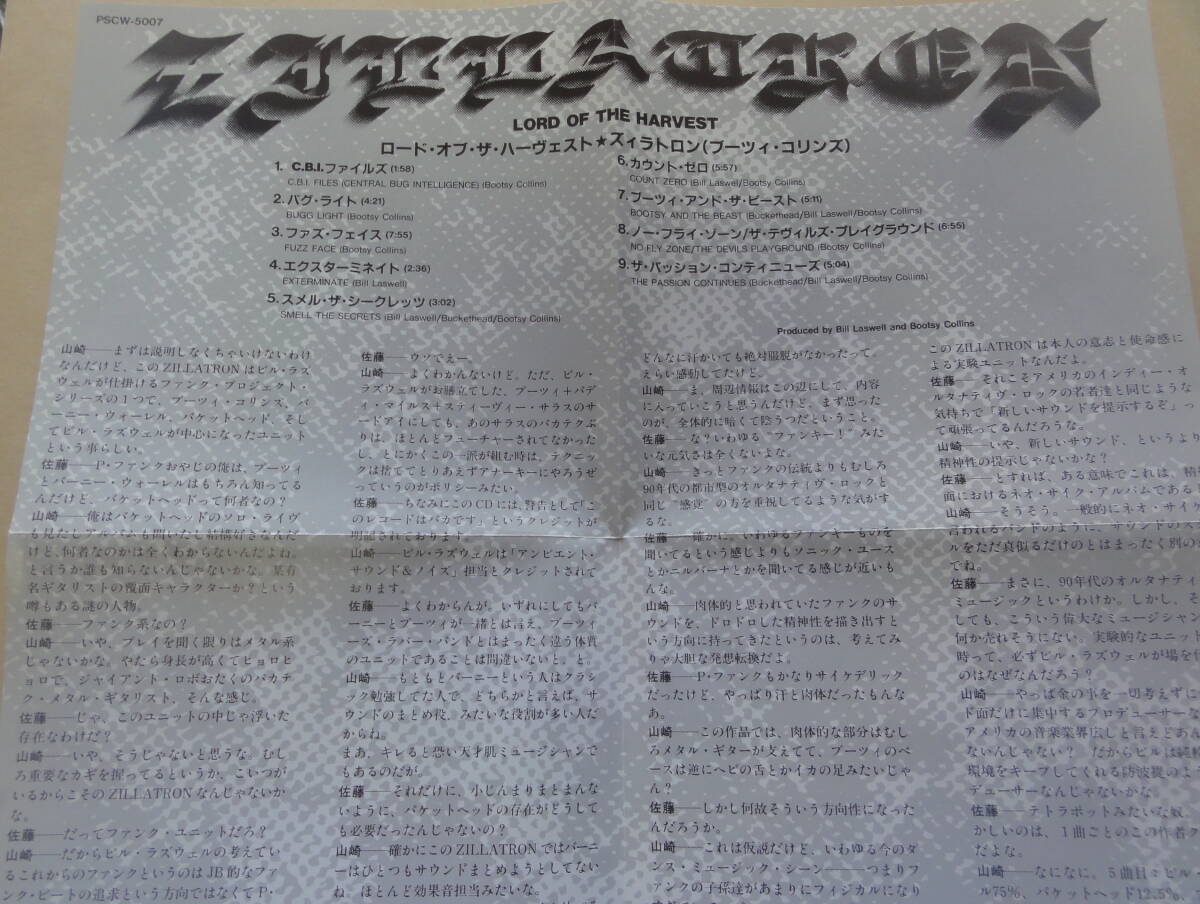 PSCW-5007
ZILLATRON
LORD OF THE HARVEST
ロード・オブ・ザ・ハーヴェスト★ズィラトロン(ブーツィ・コリンズ)
1. C.B.I.ファイルズ (1:58)
C.B.I. FILES (CENTRAL BUG INTELLIGENCE) (Bootsy Collins)
2. バグ・ライト (4:21)
BUGG LIGHT (Bootsy Collins)
3. ファズ・フェイス (7:55)
FUZZ FACE (Bootsy Collins)
4. エクスターミネイト (2:36)
EXTERMINATE (Bill Laswell)
5. スメル・ザ・シークレッツ (3:02)
SMELL THE SECRETS (Bill Laswell/Buckethead/Bootsy Collins)
6. カウント・ゼロ (5:57)
COUNT ZERO (Bill Laswell/Bootsy Collins)
7. ブーツィ・アンド・ザ・ビースト (5:11)
BOOTSY AND THE BEAST (Buckethead/Bill Laswell/Bootsy Collins)
8. ノー・フライ・ゾーン/ザ・デヴィルズ・プレイグラウンド (6:55)
NO FLY ZONE/THE DEVILS PLAYGROUND (Bootsy Collins)
9. ザ・パッション・コンティニューズ (5:04)
THE PASSION CONTINUES (Buckethead/Bill Laswell/Bootsy Collins)
Produced by Bill Laswell and Bootsy Collins
山崎――まずは説明しなくちゃいけないわけ
なんだけど、このZILLATRONはビル・ラズ
ウェルが仕掛けるファンク・プロジェクト・
シリーズの1つで、ブーツィ・コリンス、バ
ーニー・ウォーレル、バケットヘッド、そし
てビル・ラズウェルが中心になったユニット
という事らしい。
佐藤――P・ファンクおやじの俺は、ブーツィ
とバーニー・ウォーレルはもちろん知ってる
んだけど、バケットヘッドって何者なの?
山崎――俺はバケットヘッドのソロ・ライヴ
も見たしアルバムも聞いたし結構好きなんだ
けど、何者なのかは全くわからないんだよね。
と言うか誰も知らないんじゃないかな。某有
名ギタリストの覆面キャラクターか?という
噂もある謎の人物。
佐藤――ファンク系なの?
山崎――いや、プレイを聞く限りはメタル系
じゃないかな。やたら身長が高くてヒョロヒ
ョロで、ジャイアント・ロボおたくのバカテ
ク・メタル・ギタリスト、そんな感じ。
佐藤――じゃ、このユニットの中じゃ浮いた
存在なわけだ?
山崎――いや、そうじゃないと思うな。むし
ろ重要なカギを握ってるというか、こいつが
いるからこそのZILLATRONなんじゃないか
な。
佐藤――だってファンク・ユニットだろ?
山崎――だからビル・ラズウェルの考えてい
るこれからのファンクというのはJB的なファ
ンク・ビートの追求という方向ではなくてP・
佐藤――ウソでえー。
山崎――よくわかんないけど。ただ、ビル・
ラズウェルがお膳立てした、ブーツィ+バデ
ィ・マイルス+スティーヴィー・サラスのサ
ードアイにしても、あのサラスのバカテクぶ
りは、ほとんどフューチャーされてなかった
し、とにかくこの一派が組む時は、テクニッ
クは捨ててとりあえずアナーキーにやろうぜ
っていうのがポリシーみたい。
佐藤――ちなみにこのCDには、警告として「こ
のレコードはバカです」というクレジットが
明記されております。
山崎――ビル・ラズウェルは「アンビエント・
サウンド&ノイズ」担当とクレジットされて
おります。
佐藤――よくわからんが、いずれにしてもバ
ーニーとブーツィが一緒とは言え、ブーツィ
ーズ・ラバー・バンドとはまったく違う体質
のユニットであることは間違いないと。と。
山崎――もともとバーニーという人はクラシ
ック勉強してた人で、どちらかと言えば、サ
ウンドのまとめ役、みたいな役割が多い人だ
からね。
まあ、キレると恐い天才肌ミュージシャンで
もあるのだが。
佐藤――それだけに、小じんまりまとまんな
いように、バケットヘッドの存在がどうして
も必要だったんじゃないの?
山崎――確かにこのZILLATRONではバーニ
ーはひとつもサウンドまとめようとしてない
ね。ほとんど効果音担当みたいな。
どんなに汗かいても絶対服脱がなかったって。
えらい感動してたけど。
山崎――ま。周辺情報はこの辺にして、内容
に入っていこうと思うんだけど、まず思った
のが、全体的に暗くて陰うつだということ。
佐藤――な?いわゆる“ファンキー!”みた
いな元気さは全くないよな。
山崎――きっとファンクの伝統よりもむしろ
90年代の都市型のオルタナティヴ・ロックと
同じ“感覚”の方を重視してるような気がす
るな。
佐藤――確かに。いわゆるファンキーものを
聞いてるという感じよりもソニック・ユース
とかニルバーナとかを聞いてる感じが近いも
んな。
山崎――肉体的と思われていたファンクのサ
ウンドを、ドロドロした精神性を描き出すと
いう方向に持ってきたというのは、考えてみ
りゃ大胆な発想転換だよ。
佐藤――P・ファンクもかなりサイケデリック
だったけど、やっぱり汗と肉体だったもんな
あ。
山崎――この作品では、肉体的な部分はむし
ろメタル・ギターが支えてて、ブーツィのベ
ースは逆にヘビの舌とかイカの足みたいじゃ
ん?
佐藤――しかし何故そういう方向性になった
んだろうか。
山崎――これは仮説だけど、いわゆる今のダ
ンス・ミュージック・シーン――つまりフ
ァンクの子孫達があまりにフィジカルになり
このZILLATRONは本人の意志と使命感に
よる実験ユニットなんだよ。
佐藤――それこそアメリカのインディー・オ
ルタナティヴ・ロックの若者達と同じような
気持ちで「新しいサウンドを提示するぞ」っ
て頑張ってるんだろうな。
山崎――いや、新しいサウンド、というより
精神性の提示じゃないかな?
佐藤――とすれば、ある意味でこれは、精
面におけるネオ・サイク・アルバムである
山崎――そうそう。一般的にネオ・サイ
言われるバンドのように、サウンドのス
ルをただ真似るだけのとはまったく別の
でね。
佐藤――まさに、90年代のオルタナティ
ミュージックというわけか。しかし、そ
しても、こういう偉大なミュージシャン
何か売れそうにない、実験的なユニット
時って、必ずビル・ラズウェルが場を作
のはなぜなんだろう?
山崎――やっぱ金の事を一切考えずに
ド面だけに集中するプロデューサーな
アメリカの音楽業界広しと言えどあん
ないんじゃない? だからビルは純粋
環境をキープしてくれる防波堤のよう
デューサーなんじゃないかな。
佐藤――テトラポットみたいな奴。
かしいのは、1曲ごとのこの作者の
だよな。
山崎――なになに。5曲目=ビル・
ル75%、バケットヘッド12.5%、